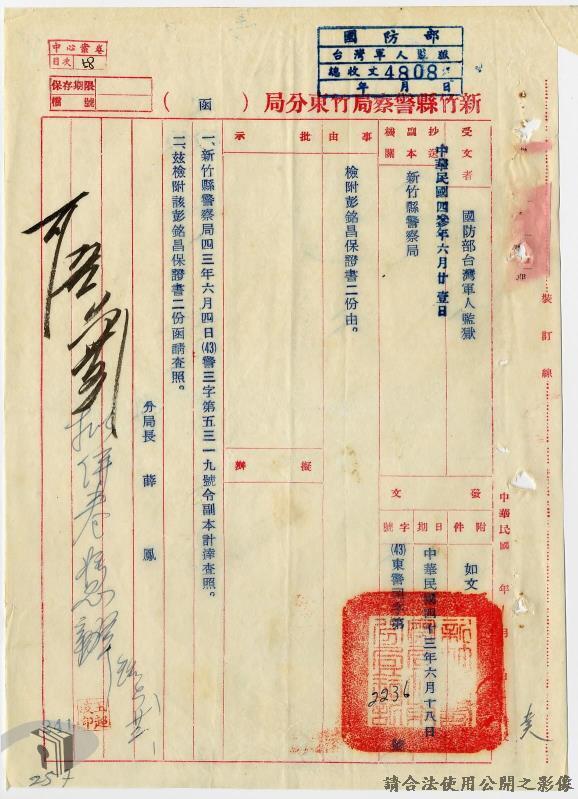 國防部
台灣軍人監獄
總收文4808號
年 月 日
中心案卷
目次 58
保存期限
檔號
新竹縣警察局竹東分局（函）
受文者
國防部台灣軍人監獄
中華民國四參年六月廿壹日
抄送副本機關
新竹縣警察局
事由
檢附彭銘昌保證書二份由。
批示
擬辦
發文
附件
如文
日期
中華民國四十三年六月十八日
字號
(43)東警司字第
2236
號
一、新竹縣警察局四三年六月四日(43)警三字第五三一九號令副本計達查照。
二、茲檢附該彭銘昌保證書二份函請查照。
分局長 薛 鳳
裝訂線
中華民國 年 月
341
25
請合法使用公開之影像